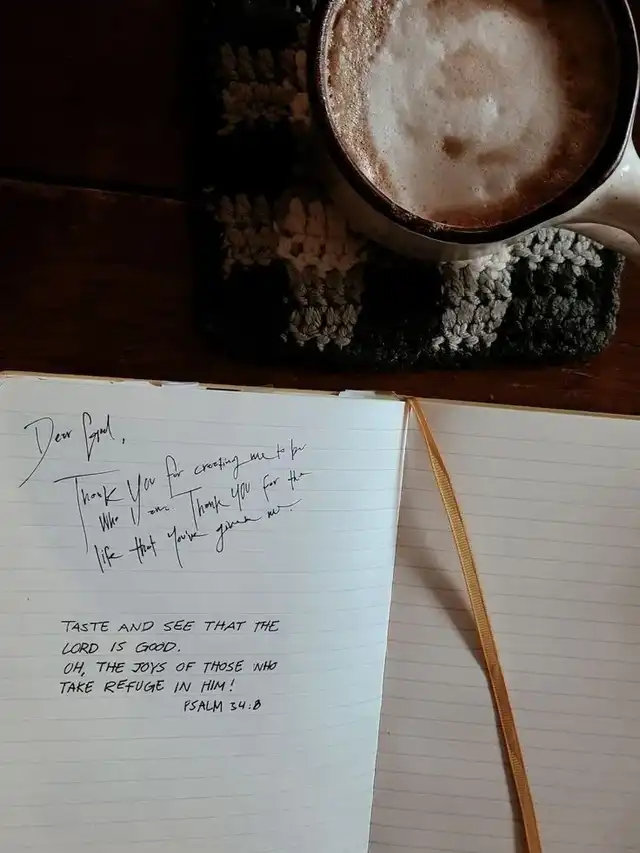 Dear God,
Thank You for creating me to be
who I am. Thank YOU for the
life that You've given me.
TASTE AND SEE THAT THE
LORD IS GOOD.
OH, THE JOYS OF THOSE WHO
TAKE REFUGE IN HIM!
PSALM 34:8